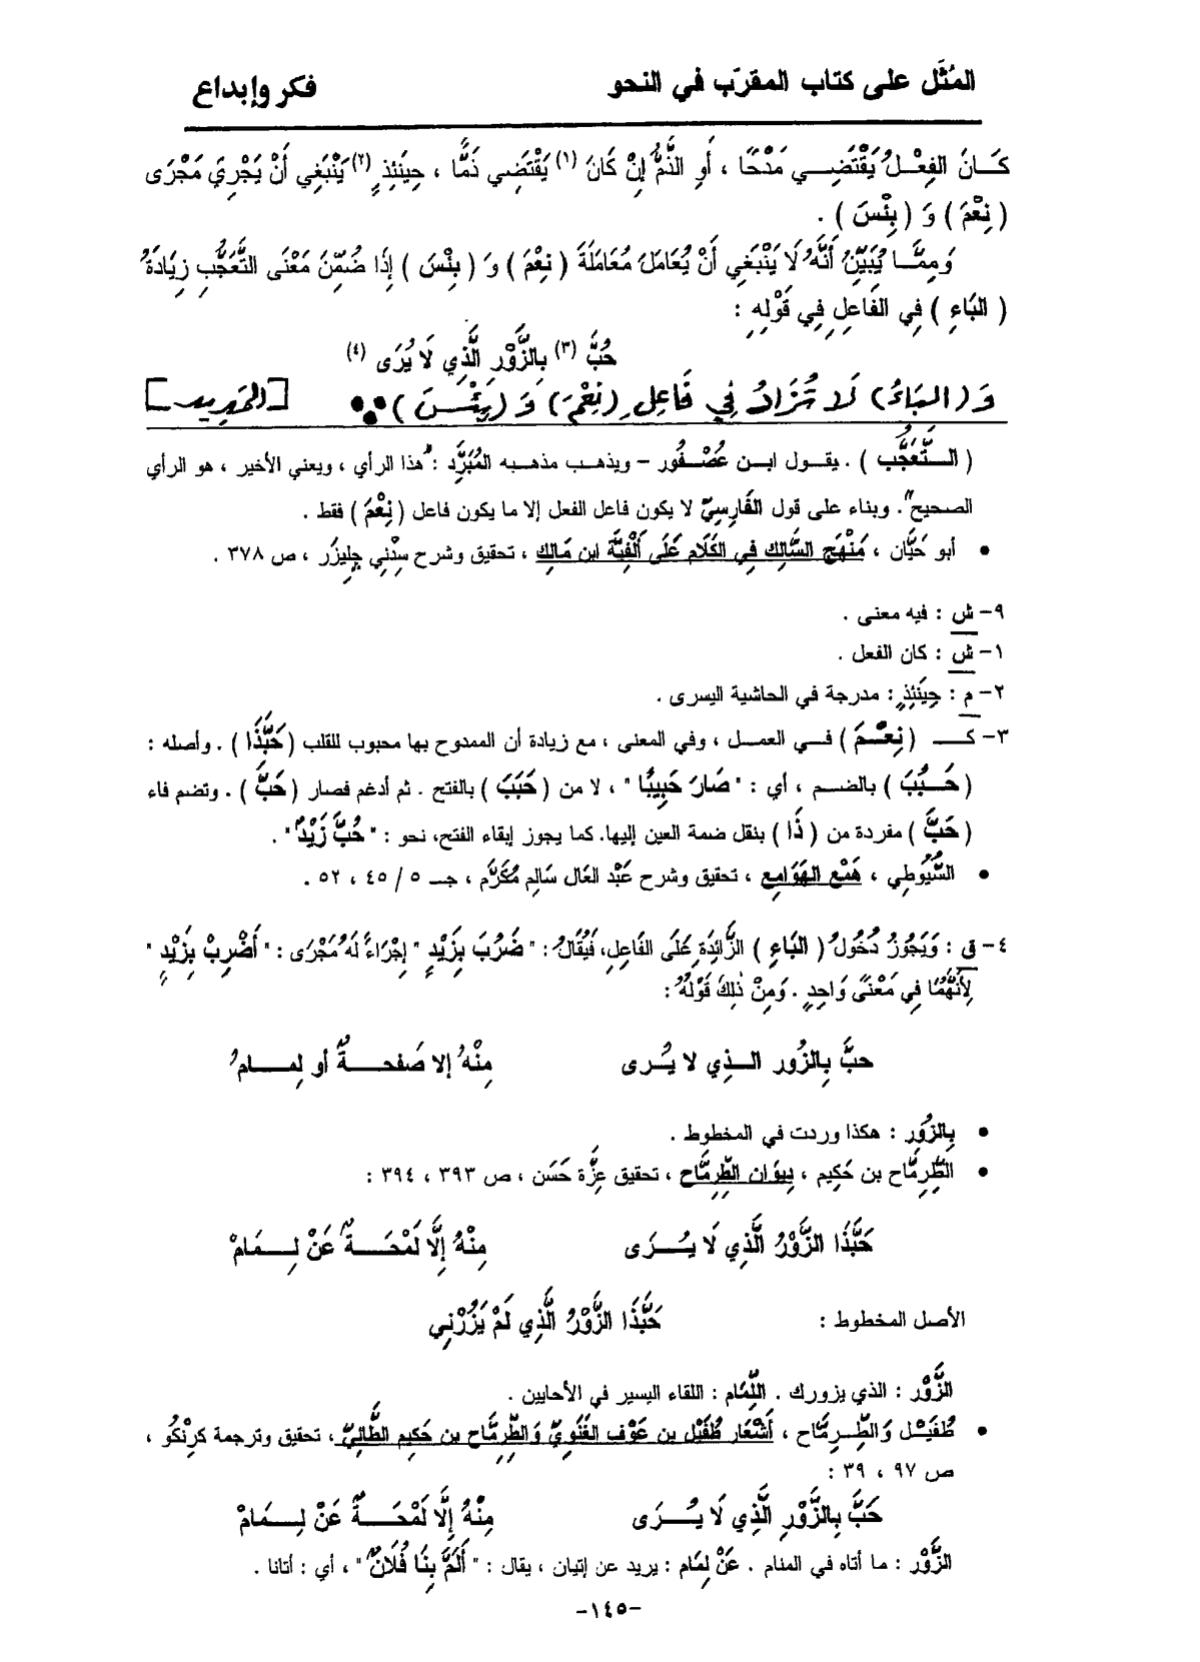 المُثَل على كتاب المقرّب في النحو فكر وإبداع
كَانَ الفِعْلُ يَقْتَضِي مَدْحًا ، أَوِ الذَّمُّ إِنْ كَانَ (١) يَقْتَضِي ذَمًّا ، حِينَئِذٍ (٢) يَنْبَغِي أَنْ يَجْرِيَ مَجْرَى
( نِعْمَ ) وَ ( بِئْسَ ) .
وَمِمَّا يُبَيِّنُ أَنَّهُ لَا يَنْبَغِي أَنْ يُعَامَلَ مُعَامَلَةَ ( نِعْمَ ) وَ ( بِئْسَ ) إِذَا ضُمِّنَ مَعْنَى التَّعَجُّبِ زِيَادَةُ
( البَاءِ ) فِي الفَاعِلِ فِي قَوْلِهِ :
حُبَّ (٣) بِالزَّوْرِ الَّذِي لَا يُرَى (٤)
وَ (البَاءُ) لَا تُزَادُ فِي فَاعِلِ (نِعْمَ) وَ (بِئْسَ) [المديد]
( التَّعَجُّب ) . يقول ابن عُصْفُور – ويذهب مذهبه المُبَرِّد : "هذا الرأي ، ويعني الأخير ، هو الرأي
الصحيح" . وبناء على قول الفَارِسِيّ لا يكون فاعل الفعل إلا ما يكون فاعل ( نِعْمَ ) فقط .
• أبو حَيَّان ، مَنْهَج السَّالِك فِي الكَلَام عَلَى أَلْفِيَّة ابن مَالِك ، تحقيق وشرح سِدْنِي جِلِيزَر ، ص ٣٧٨ .
٩- ش : فيه معنى .
١- ش : كان الفعل .
٢- م : حِينَئِذٍ : مدرجة في الحاشية اليسرى .
٣- كـ ( نِعْمَ ) في العمل ، وفي المعنى ، مع زيادة أن الممدوح بها محبوب للقلب ( حَبَّذَا ) . وأصله :
( حَبُبَ ) بالضم ، أي : " صَارَ حَبِيبًا " ، لا من ( حَبَبَ ) بالفتح . ثم أدغم فصار ( حَبَّ ) . وتضم فاء
( حَبَّ ) مفردة من ( ذَا ) بنقل ضمة العين إليها. كما يجوز إبقاء الفتح، نحو : " حُبَّ زَيْدٌ" .
• السُّيُوطِي ، هَمْع الهَوَامِع ، تحقيق وشرح عَبْد العَال سَالِم مُكَرَّم ، جـ ٥ / ٤٥ ، ٥٢ .
٤- ق : وَيَجُوزُ دُخُولُ ( البَاءِ ) الزَّائِدَةِ عَلَى الفَاعِلِ، فَيُقَالُ : " ضَرُبَ بِزَيْدٍ " إِجْرَاءً لَهُ مُجْرَى : " أَضْرِبْ بِزَيْدٍ "
لِأَنَّهُمَا فِي مَعْنًى وَاحِدٍ . وَمِنْ ذَلِكَ قَوْلُهُ :
حبَّ بِالزُور الذي لا يُرى مِنْهُ إلا صَفحةٌ أو لِمامُ
• بِالزُور : هكذا وردت في المخطوط .
• الطِّرِمَّاح بن حَكِيم ، دِيوَان الطِّرِمَّاح ، تحقيق عِزَّة حَسَن ، ص ٣٩٣ ، ٣٩٤ :
حَبَّذَا الزَّوْرُ الَّذِي لَا يُرَى مِنْهُ إِلَّا لَمْحَةٌ عَنْ لِمَامْ
الأصل المخطوط : حَبَّذَا الزَّوْرُ الَّذِي لَمْ يَزُرْنِي
الزَّوْر : الذي يزورك . اللِّمَام : اللقاء اليسير في الأحايين .
• طُفَيْل وَالطِّرِمَّاح ، أَشْعَار طُفَيْل بن عَوْف الغَنَوِيّ وَالطِّرِمَّاح بن حَكِيم الطَّائِيّ ، تحقيق وترجمة كرِنْكُو ،
ص ٩٧ ، ٣٩ :
حَبَّ بِالزَّوْرِ الَّذِي لَا يُرَى مِنْهُ إِلَّا لَمْحَةٌ عَنْ لِمَامْ
الزَّوْر : ما أتاه في المنام . عَنْ لِمَام : يريد عن إتيان ، يقال : " أَلَمَّ بِنَا فُلَانٌ " ، أي : أتانا .
-١٤٥-